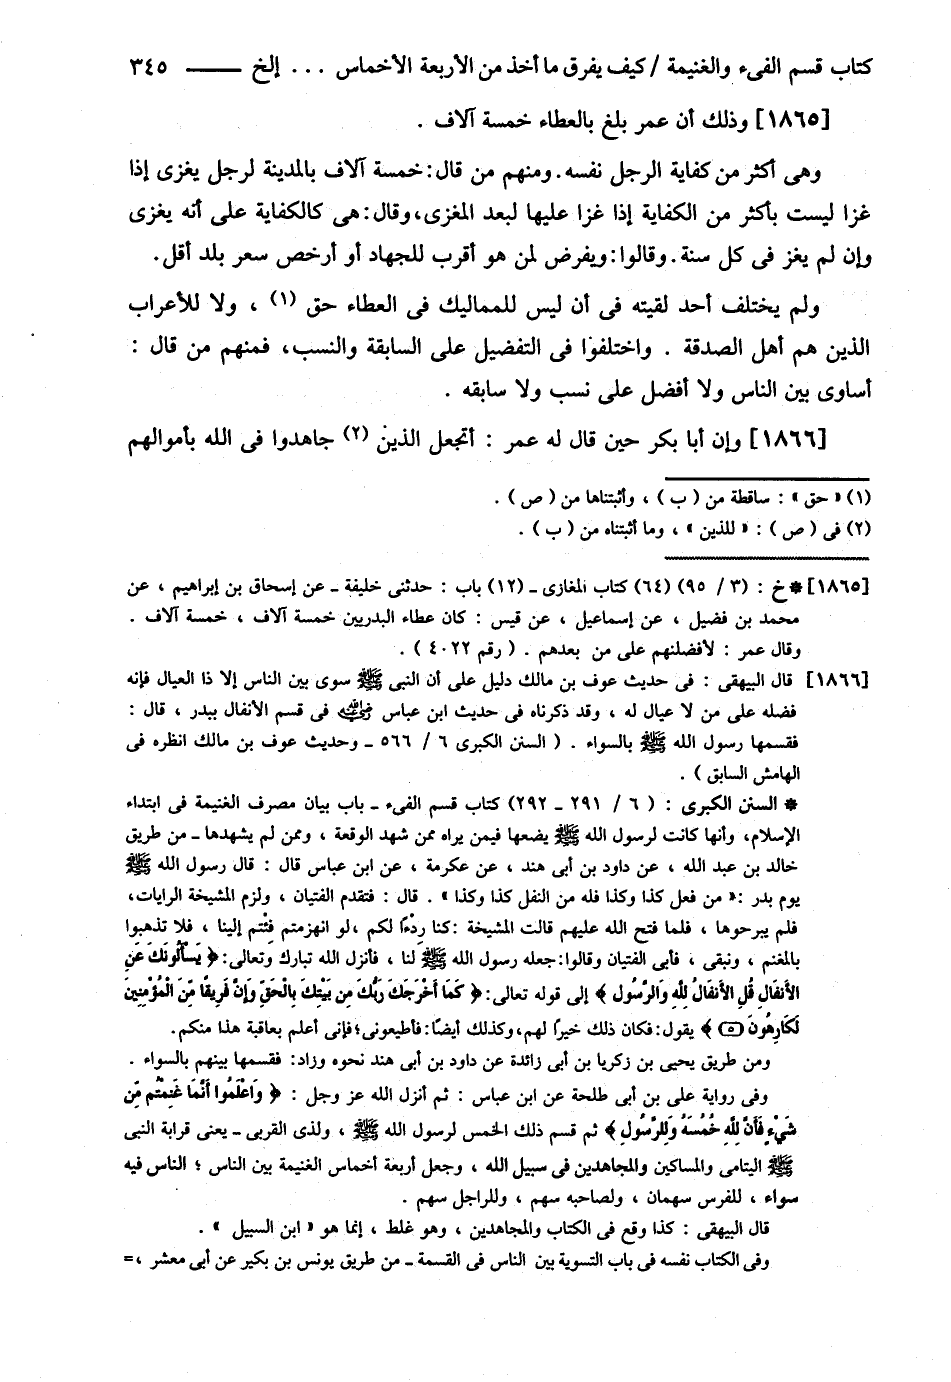 كتاب قسم الفىء والغنيمة / كيف يفرق ما أخذ من الأربعة الأخماس . . . إلخ ــــــ ٣٤٥
[١٨٦٥] وذلك أن عمر بلغ بالعطاء خمسة آلاف .
وهى أكثر من كفاية الرجل نفسه. ومنهم من قال: خمسة آلاف بالمدينة لرجل يغزى إذا
غزا ليست بأكثر من الكفاية إذا غزا عليها لبعد المغزى، وقال: هى كالكفاية على أنه يغزى
وإن لم يغز فى كل سنة. وقالوا: ويفرض لمن هو أقرب للجهاد أو أرخص سعر بلد أقل.
ولم يختلف أحد لقيته فى أن ليس للمماليك فى العطاء حق (١) ، ولا للأعراب
الذين هم أهل الصدقة . واختلفوا فى التفضيل على السابقة والنسب، فمنهم من قال :
أساوى بين الناس ولا أفضل على نسب ولا سابقه .
[١٨٦٦] وإن أبا بكر حين قال له عمر : أتجعل الذين (٢) جاهدوا فى الله بأموالهم
(١) « حق » : ساقطة من ( ب ) ، وأثبتناها من ( ص ) .
(٢) فى ( ص ) : « للذين » ، وما أثبتناه من ( ب ) .
[١٨٦٥] * خ : (٣ / ٩٥) (٦٤) كتاب المغازى ـ (١٢) باب : حدثنى خليفة ـ عن إسحاق بن إبراهيم ، عن
محمد بن فضيل ، عن إسماعيل ، عن قيس : كان عطاء البدريين خمسة آلاف ، خمسة آلاف .
وقال عمر : لأفضلنهم على من بعدهم . ( رقم ٤٠٢٢ ) .
[١٨٦٦] قال البيهقى : فى حديث عوف بن مالك دليل على أن النبى ﷺ سوى بين الناس إلا ذا العيال فإنه
فضله على من لا عيال له ، وقد ذكرناه فى حديث ابن عباس رضي الله عنه فى قسم الأنفال ببدر ، قال :
فقسمها رسول الله ﷺ بالسواء . ( السنن الكبرى ٦ / ٥٦٦ ـ وحديث عوف بن مالك انظره فى
الهامش السابق ) .
* السنن الكبرى : ( ٦ / ٢٩١ ـ ٢٩٢) كتاب قسم الفىء ـ باب بيان مصرف الغنيمة فى ابتداء
الإسلام، وأنها كانت لرسول الله ﷺ يضعها فيمن يراه ممن شهد الوقعة ، وممن لم يشهدها ـ من طريق
خالد بن عبد الله ، عن داود بن أبى هند ، عن عكرمة ، عن ابن عباس قال : قال رسول الله ﷺ
يوم بدر :« من فعل كذا وكذا فله من النفل كذا وكذا » . قال : فتقدم الفتيان ، ولزم المشيخة الرايات،
فلم يبرحوها ، فلما فتح الله عليهم قالت المشيخة :كنا رِدْءًا لكم ،لو انهزمتم فِئْتم إلينا ، فلا تذهبوا
بالمغنم ، ونبقى ، فأبى الفتيان وقالوا:جعله رسول الله ﷺ لنا ، فأنزل الله تبارك وتعالى:﴿ يَسْأَلُونَكَ عَنِ
الأَنفَالِ قُلِ الأَنفَالُ لِلَّهِ وَالرَّسُولِ ﴾ إلى قوله تعالى:﴿ كَمَا أَخْرَجَكَ رَبُّكَ مِن بَيْتِكَ بِالْحَقِّ وَإِنَّ فَرِيقًا مِّنَ الْمُؤْمِنِينَ
لَكَارِهُونَ ۝٥ ﴾ يقول: فكان ذلك خيرًا لهم، وكذلك أيضًا: فأطيعونى؛ فإنى أعلم بعاقبة هذا منكم.
ومن طريق يحيى بن زكريا بن أبى زائدة عن داود بن أبى هند نحوه وزاد: فقسمها بينهم بالسواء .
وفى رواية على بن أبى طلحة عن ابن عباس : ثم أنزل الله عز وجل : ﴿ وَاعْلَمُوا أَنَّمَا غَنِمْتُم مِّن
شَيْءٍ فَأَنَّ لِلَّهِ خُمُسَهُ وَلِلرَّسُولِ ﴾ ثم قسم ذلك الخمس لرسول الله ﷺ ، ولذى القربى ـ يعنى قرابة النبى
ﷺ اليتامى والمساكين والمجاهدين فى سبيل الله ، وجعل أربعة أخماس الغنيمة بين الناس ؛ الناس فيه
سواء ، للفرس سهمان ، ولصاحبه سهم ، وللراجل سهم .
قال البيهقى : كذا وقع فى الكتاب والمجاهدين ، وهو غلط ، إنما هو « ابن السبيل » .
وفى الكتاب نفسه فى باب التسوية بين الناس فى القسمة ـ من طريق يونس بن بكير عن أبى معشر ،=